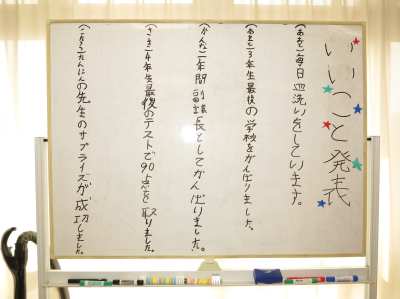 いいこと発表
(あおと)毎日皿洗いをしています。
(あおと)3年生最後の学校をがんばりました。
(かんな)一年間副議長としてがんばりました。
(さき)4年生最後のテストで90点を取りました。
たんにんの先生のサプライズが成功しました。